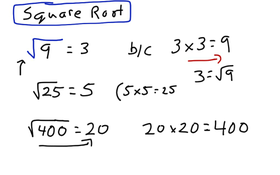 Square Root
√9 = 3 b/c 3×3=9
3=√9
√25 = 5 (5×5=25
√400 = 20 20×20=400